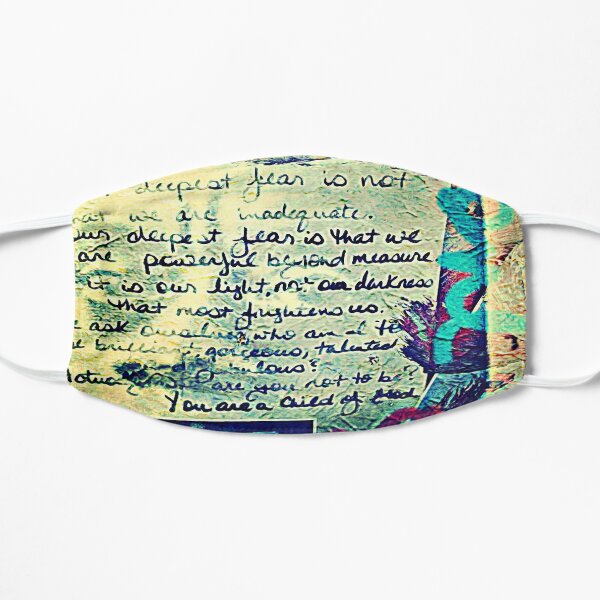 deepest fear is not
at we are inadequate.
our deepest fear is that we
are powerful beyond measure
it is our light, not our darkness
that most frightens us.
ask ourselves, who am I to
brilliant, gorgeous, talented
fabulous?
are you not to be?
You are a child of God